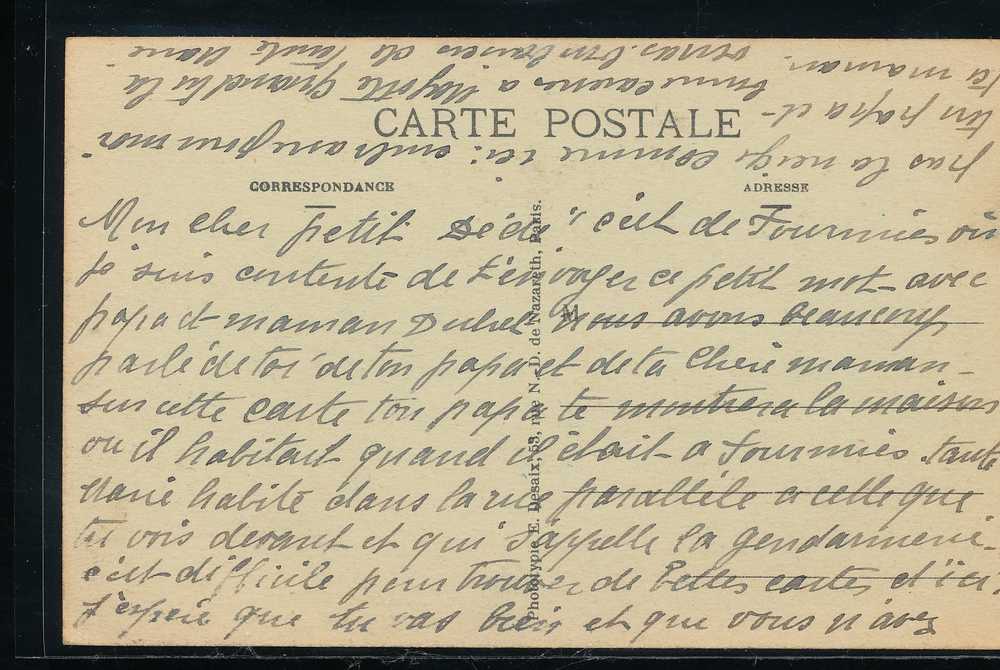 CARTE POSTALE
CORRESPONDANCE
ADRESSE
Mon cher petit Dédé" c'est de Fourmies où
je suis contente de t'envoyer ce petit mot avec
papa et maman Nous avons beaucoup
parlé de toi de ton papa et de ta Chère maman -
sur cette carte ton papa te montrera la maison
ou il habitait quand il était a Fourmies. tante
Marie habite dans la rue parallèle a celle que
tu vois devant et qui s'appelle la gendarmerie -
c'est difficile pour trouver de belles cartes d'ici.
J'espère que tu vas bien et que vous n'avez
pas la neige comme ici: embrasse pour moi
ton papa et
ta maman.
bonne a Mayotte Grand'tu la
verras. Un baiser de tante Marie
Phototypie E. Desaix, 53, rue N.-D. de Nazareth, Paris.
M